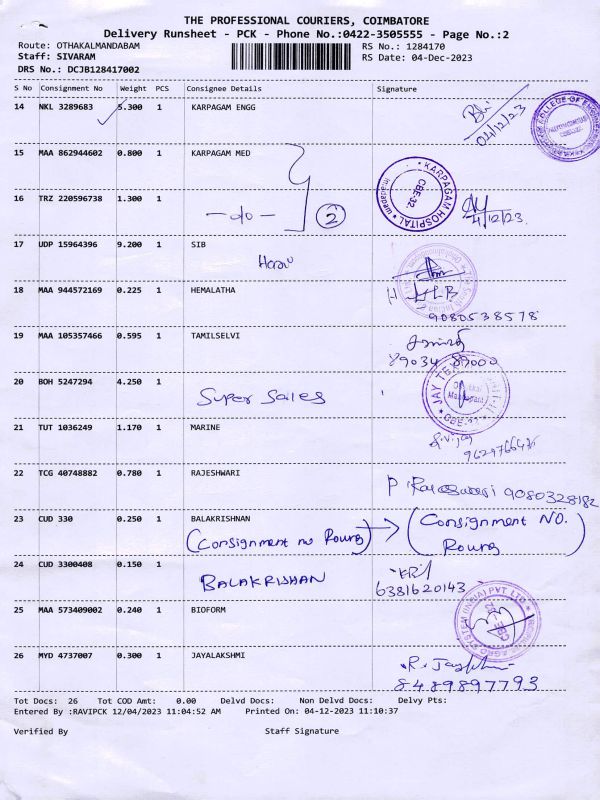 THE PROFESSIONAL COURIERS, COIMBATORE
Delivery Runsheet - PCK - Phone No.:0422-3505555 - Page No.:2
Route: OTHAKALMANDABAM RS No.: 1284170
Staff: SIVARAM RS Date: 04-Dec-2023
DRS No.: DCJB128417002
S No Consignment No Weight PCS Consignee Details Signature
14 NKL 3289683 5.300 1 KARPAGAM ENGG
04/12/23
COLLEGE OF
15 MAA 862944602 0.800 1 KARPAGAM MED
KARPAGAM HOSPITAL
CBE-32.
16 TRZ 220596738 1.300 1
-do- 2 4/12/23.
17 UDP 15964396 9.200 1 SIB
18 MAA 944572169 0.225 1 HEMALATHA
9080538578
19 MAA 105357466 0.595 1 TAMILSELVI
89034 89000
20 BOH 5247294 4.250 1
Super Sales
JAY
21 TUT 1036249 1.170 1 MARINE
22 TCG 40748882 0.780 1 RAJESHWARI
P Rajeswari 9080328182
23 CUD 330 0.250 1 BALAKRISHNAN
(Consignment no Roung) → (Consignment NO. Roung)
24 CUD 3300408 0.150 1
BALAKRISHAN
6381620143
25 MAA 573409002 0.240 1 BIOFORM
AGRO SYSTEM (INDIA) PVT LTD
26 MYD 4737007 0.300 1 JAYALAKSHMI
8489897793
Tot Docs: 26 Tot COD Amt: 0.00 Delvd Docs: Non Delvd Docs: Delvy Pts:
Entered By :RAVIPCK 12/04/2023 11:04:52 AM Printed On: 04-12-2023 11:10:37
Verified By Staff Signature